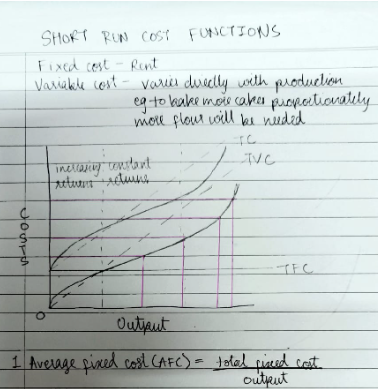 SHORT RUN COST FUNCTIONS
Fixed cost - Rent
Variable cost - varies directly with production
eg to bake more cakes proportionately
more flour will be needed
TC
TVC
increasing constant
returns returns
COSTS
TFC
O
Output
1 Average fixed cost (AFC) = total fixed cost
output